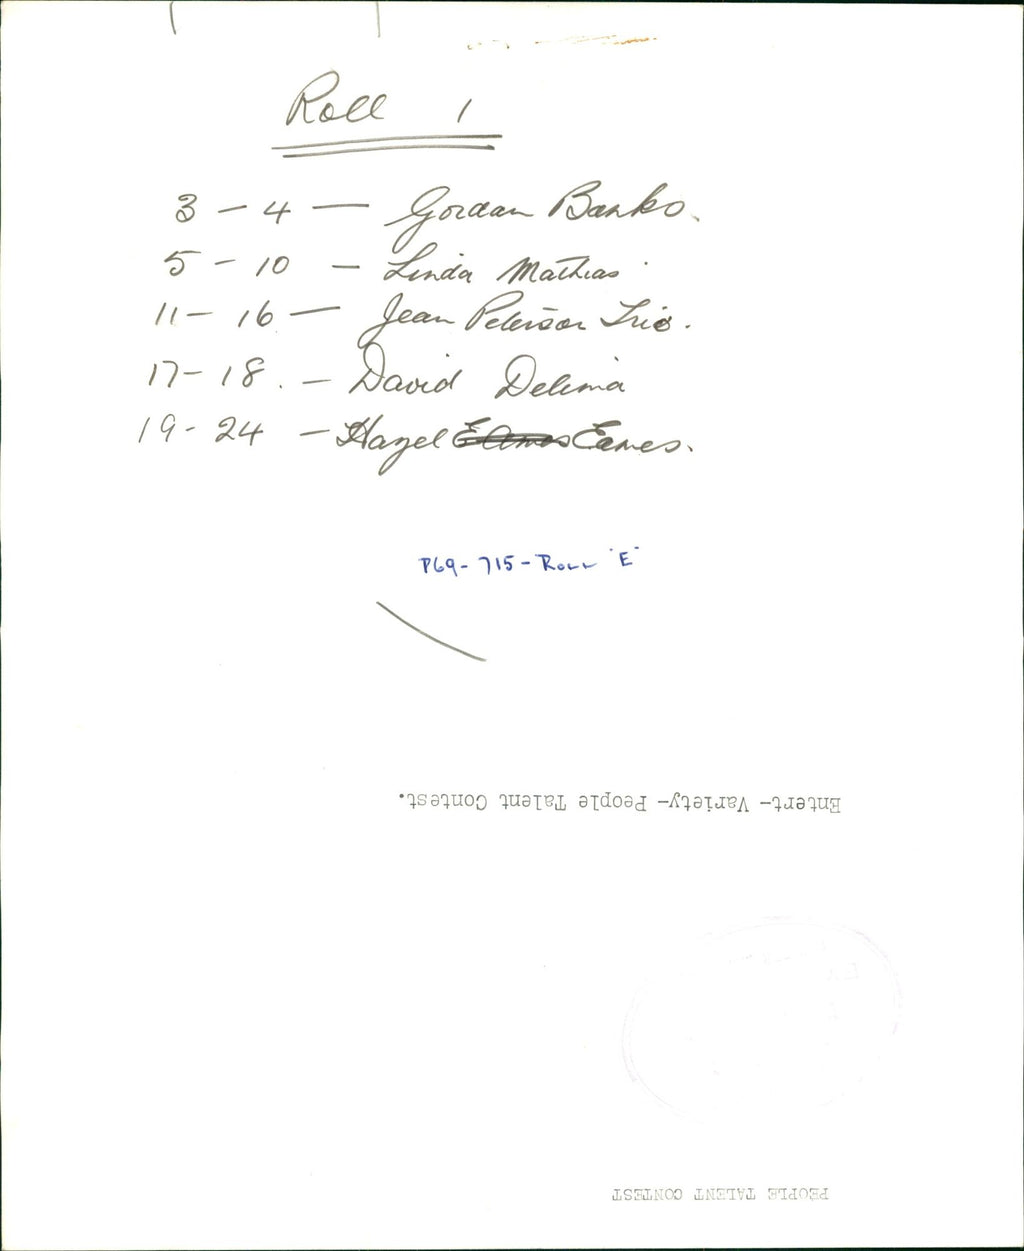 Roll 1
3 - 4 — Gordan Banks.
5 - 10 - Linda Mathias.
11 - 16 — Jean Peterson Trio.
17 - 18. - David Delima
19 - 24 - Hazel Eames.
P69-715-Roll "E"
Entert- Variety- People Talent Contest.
PEOPLE TALENT CONTEST